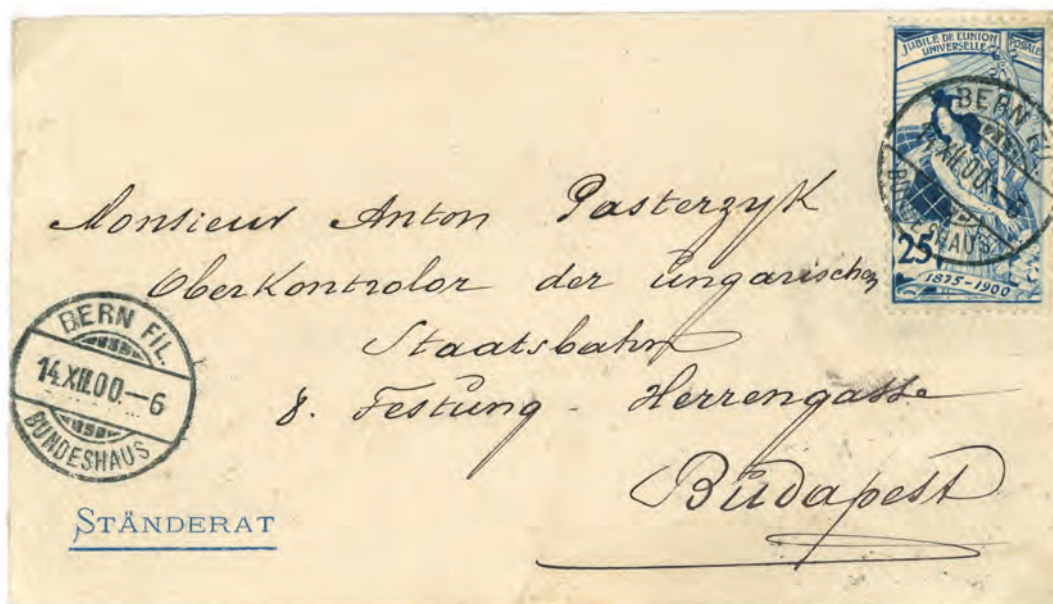 JUBILÉ DE L'UNION POSTALE
UNIVERSELLE
BERN FIL.
14.XII.00.–6
BUNDESHAUS
25
1875–1900
Monsieur Anton Pasterzyk
OberKontrolor der ungarischen
Staatsbahn
8. Festung - Herrengasse
Budapest
BERN FIL.
14.XII.00.–6
BUNDESHAUS
STÄNDERAT